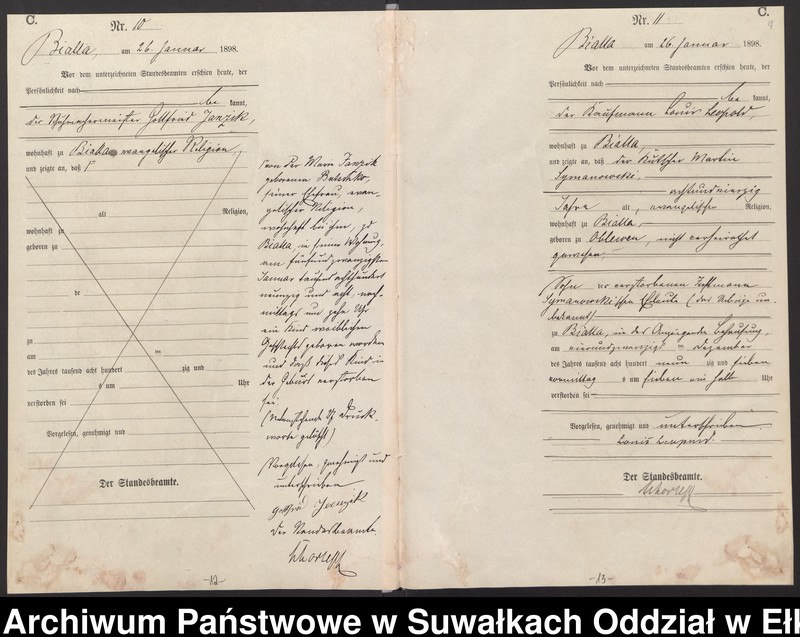 C.
Nr. 10
Bialla, am 26. Januar 1898.
Vor dem unterzeichneten Standesbeamten erschien heute, der
Persönlichkeit nach
be kannt,
der Schuhmachermeister Gottfried Janzik,
wohnhaft zu Bialla evangelischer Religion,
und zeigte an, daß
alt Religion,
wohnhaft zu
geboren zu
de
zu
am ten
des Jahres tausend acht hundert zig und
s um Uhr
verstorben sei
Vorgelesen, genehmigt und
Der Standesbeamte.
von der Marie Janzik
geborenen
seiner Ehefrau, evan-
gelischer Religion,
wohnhaft bei ihm, zu
Bialla, in seiner Wohnung,
am fünfundzwanzigsten
Januar tausend achthundert
neunzig und acht, nach-
mittags um zehn Uhr
ein Kind weiblichen
Geschlechts geboren worden
und daß dieses Kind in
der Geburt verstorben
sei.
(Nebenstehende Druck-
worte gelöscht)
Vorgelesen, genehmigt und
unterschrieben
Gottfried Janzik
Der Standesbeamte.
-12-
C.
Nr. 11
Bialla am 26. Januar 1898.
Vor dem unterzeichneten Standesbeamten erschien heute, der
Persönlichkeit nach
be kannt,
der Kaufmann Louis Leopold,
wohnhaft zu Bialla,
und zeigte an, daß der Kutscher Martin
Symanowski,
achtundvierzig
Jahre alt, evangelischer Religion,
wohnhaft zu Bialla,
geboren zu Oblewen, nicht verheirathet
gewesen,
Sohn der verstorbenen Instmann
Symanowski'schen Eheleute (das Uebrige un-
bekannt)
zu Bialla, in des Anzeigenden Behausung,
am vierundzwanzigsten Dezember
des Jahres tausend acht hundert neun zig und sieben
vormittag s um sieben ein halb Uhr
verstorben sei
Vorgelesen, genehmigt und unterschrieben.
Louis Leopold.
Der Standesbeamte.
-13-
Archiwum Państwowe w Suwałkach Oddział w Ełk